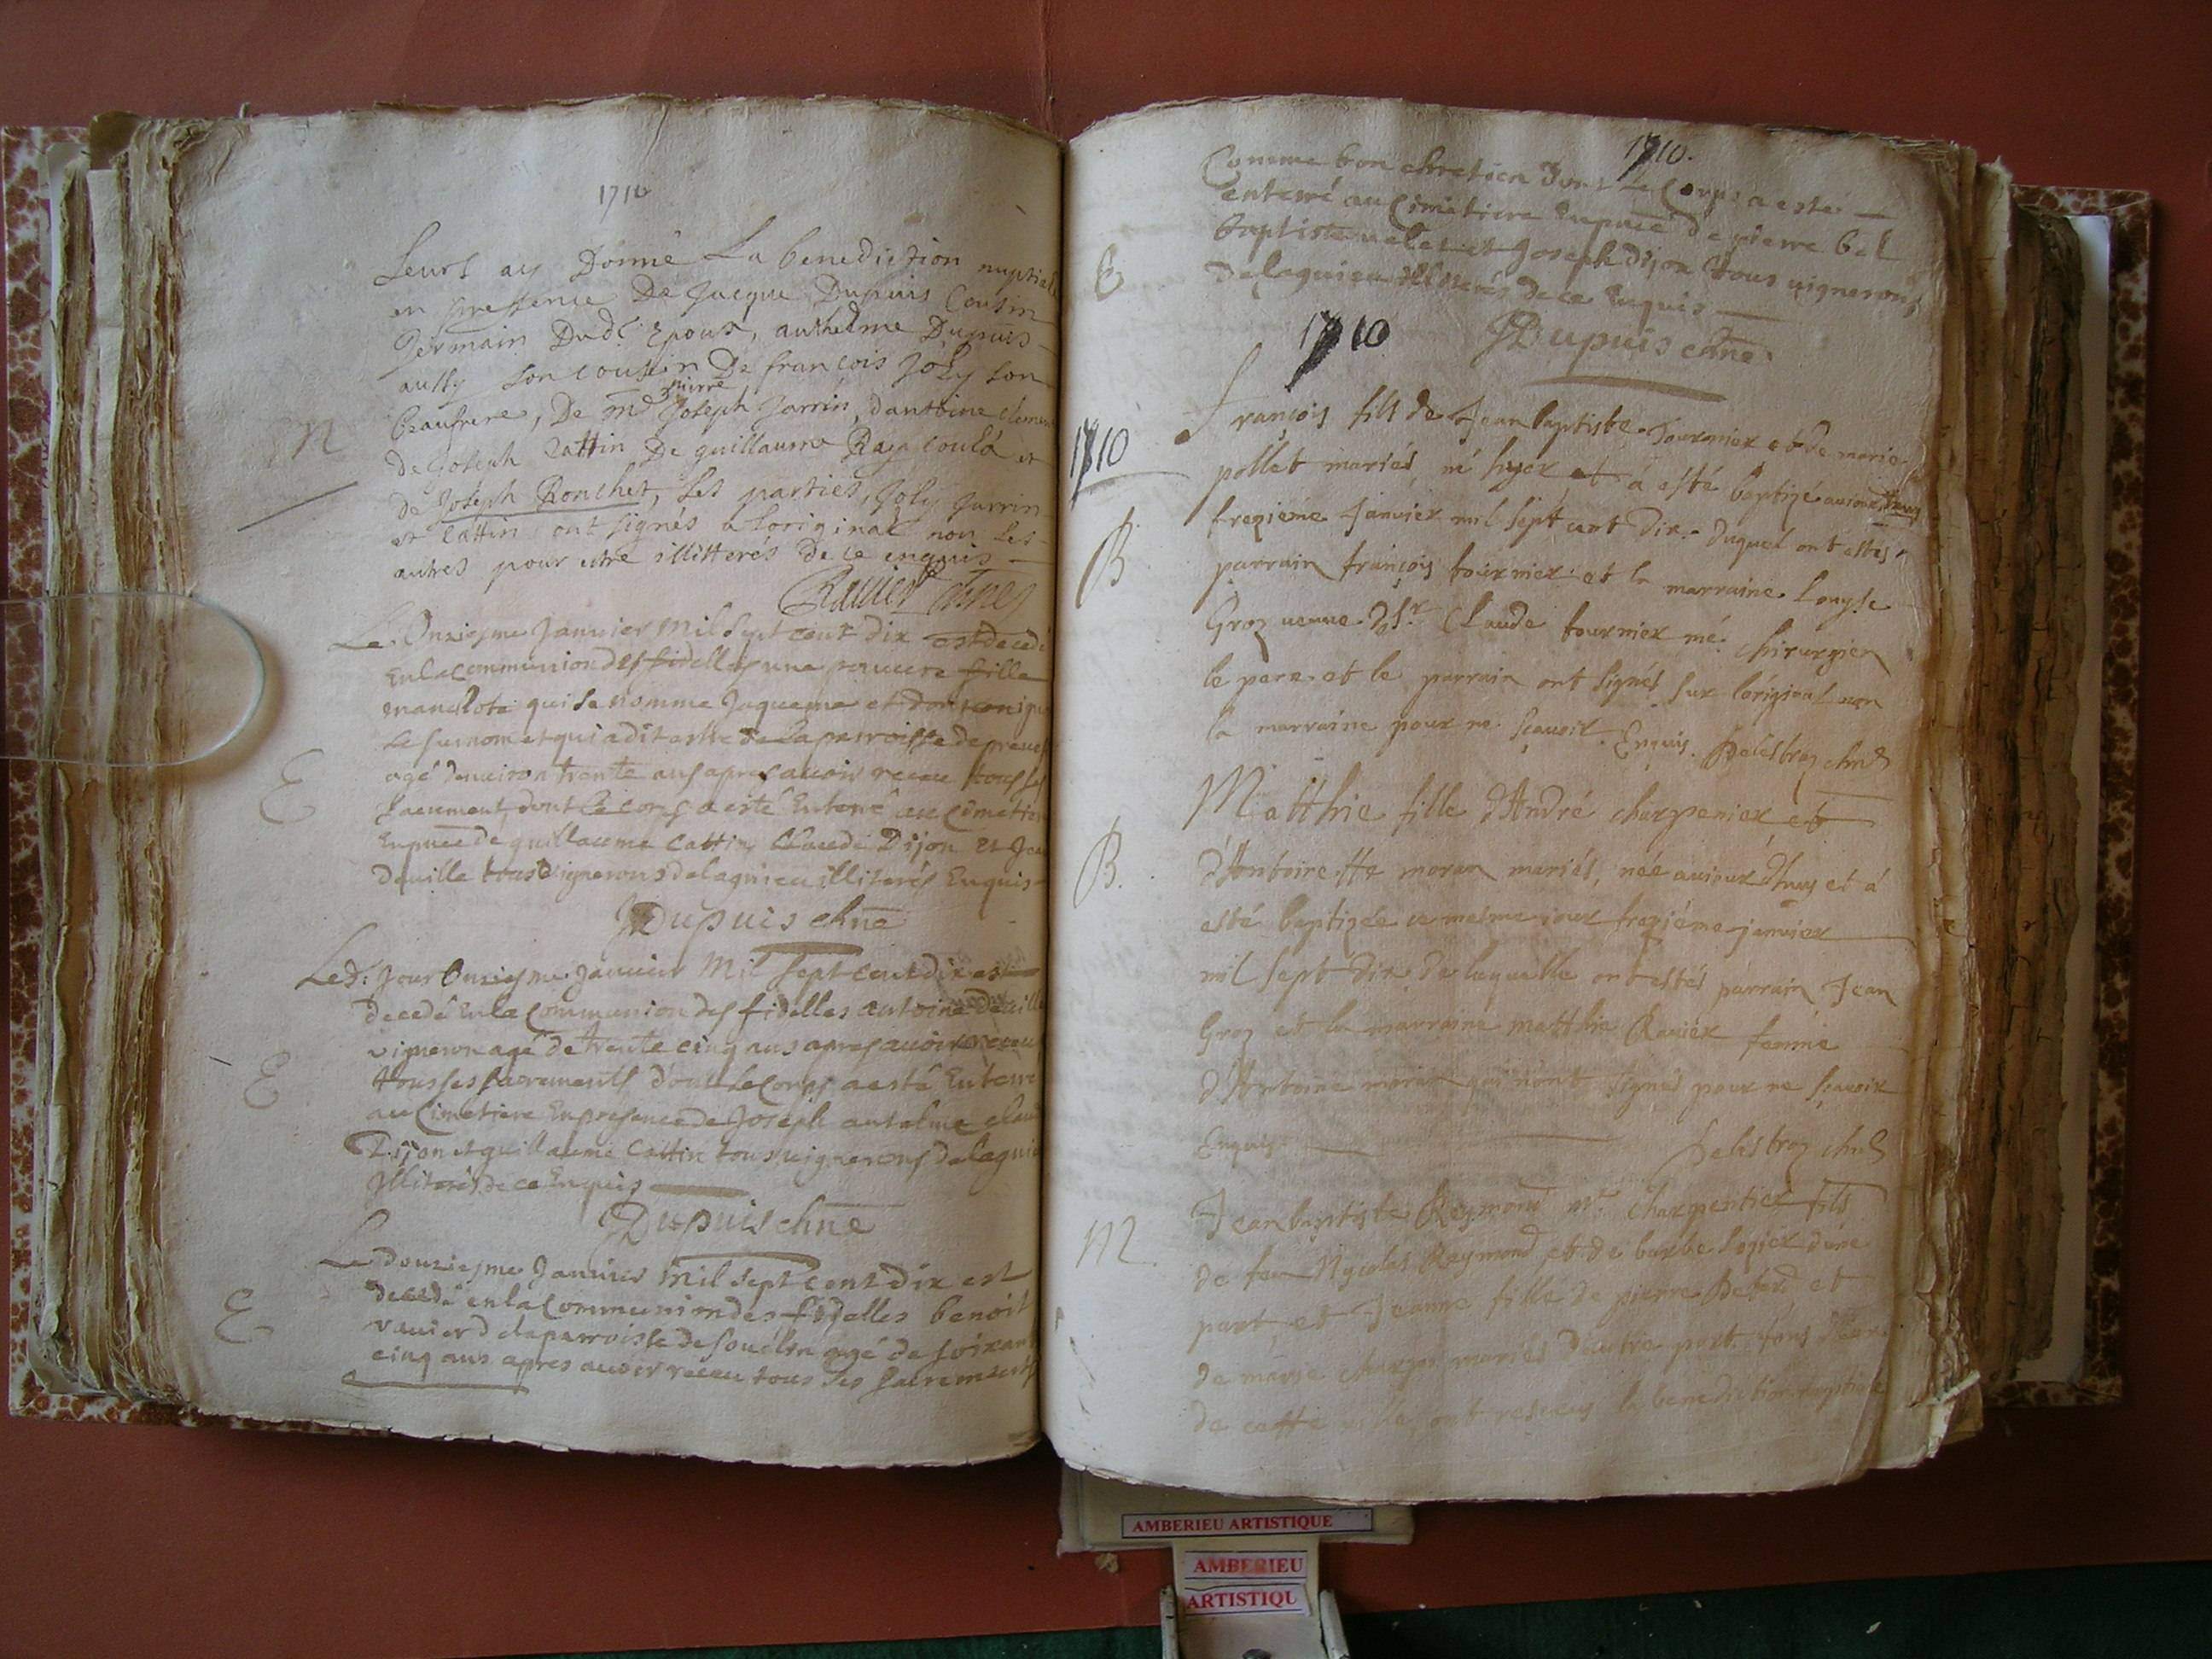 1710
Leurs ay Donné La benediction nuptiale
en pressence De Jacque Dupuis Cousin
Germain Dud. Epoux, anthelme Dupuis
aussy son cousin De francois Joly son
pierre
beaufrere, De me Joseph Jarrin, dantoine clement
N
de Joseph Cattin De guillaume et
de Joseph Ronchet, Les parties, Joly Jarrin
et Cattin ont signés a Loriginal non Les
autres pour etre illitterés de ce enquis
Ravier chne
Le Onziesme Janvier Mil Sept cent dix est decedé
En la communion des fidelles une pauvre fille
manchote qui se nomme Jaqueme et dont
Le surnom et qui a dit estre de La parroisse de
agé denviron trente ans apres avoir receu tous ses
E
Sacrement, dont Le corps a esté Enterré au Cimetiere
En pnce de guillaume Cattin Claude Dijon Et Jean
deville tous vignerons de lagnieu illiterés Enquis
JDupuis chne
Led. Jour Onziesme Janvier Mil Sept cent dix est
decedé En la Communion des fidelles antoine deville
vigneron agé de trente cinq ans apres avoir receu
E
tous ses sacrements dont Le Corps a esté Enterré
au Cimetiere En presence de Joseph antelme claude
Dijon et guillaume Cattin tous vignerons de lagnieu
Illiterés de ce Enquis
Dupuis chne
Le douziesme Janvier Mil Sept cent dix est
decedé en la Communion des fidelles benoit
E
ravier de la parroisse de Souclin agé de soixante
cinq ans apres avoir receu tous Ses Sacrements
1710.
Comme bon chretien dont Le Corps a esté
enterré au Cimetiere En pnce de pierre bel
baptiste velet et Joseph dijon tous vignerons
E
de lagnieu Illiterés de ce Enquis
1710
JDupuis chne
François fils de Jean baptiste Tournier et de marie
1710
pollet mariés, né hyer et á esté baptizé aujourdhuy
trezième Janvier mil sept cent dix. Duquel ont estés
B
parrain françois tournier et la marraine Louyse
Groz veuve de Sr Claude tournier me chirurgien
le pere et le parrain ont signés sur loriginal non
la marraine pour ne sçavoir. Enquis. Delestraz chne
Matthie fille d'André charpenier et
B.
d'Antoinette moran mariés, née aujourd'huy et á
esté baptizée ce mesme jour trezième janvier
mil sept dix. de laquelle ont estés parrain Jean
Groz et la marraine matthie Ravier femme
d'Antoine moran qui n'ont signés pour ne sçavoir
Enquis
Delestraz chne
M.
Jean baptiste Reymond me charpentier fils
de feu Nycolas Reymond et de barbe logier dune
part et Jeanne fille de pierre et
de marie mariés dautre part tous deux
de cette ville ont receus la benediction nuptiale
AMBERIEU ARTISTIQUE
AMBERIEU
ARTISTIQU